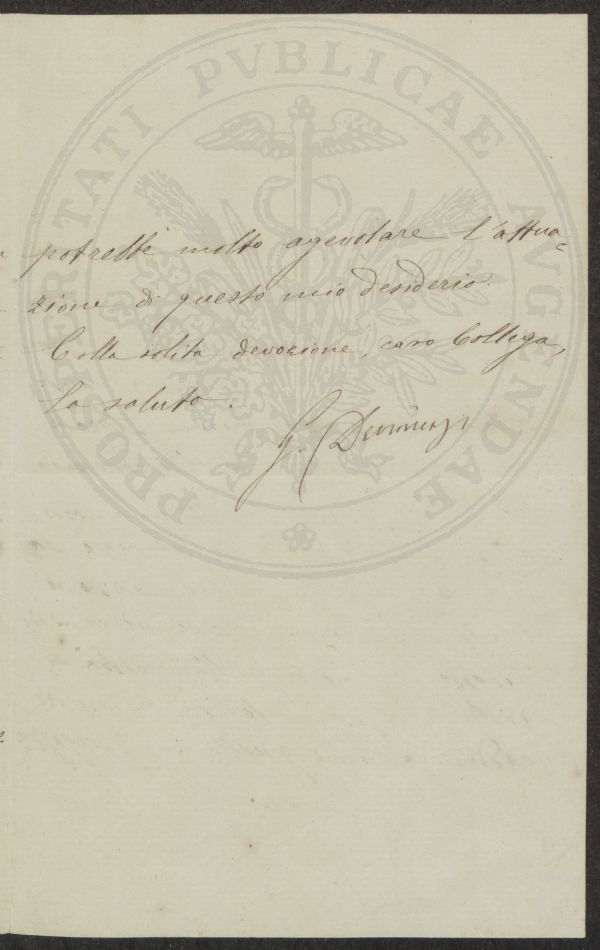 potrebbe molto agevolare l'attua=
zione di questo mio desiderio.
Colla solita devozione, caro Collega,
La saluto.
G. Devincenzi
PROSPERITATI PVBLICAE AVGENDAE